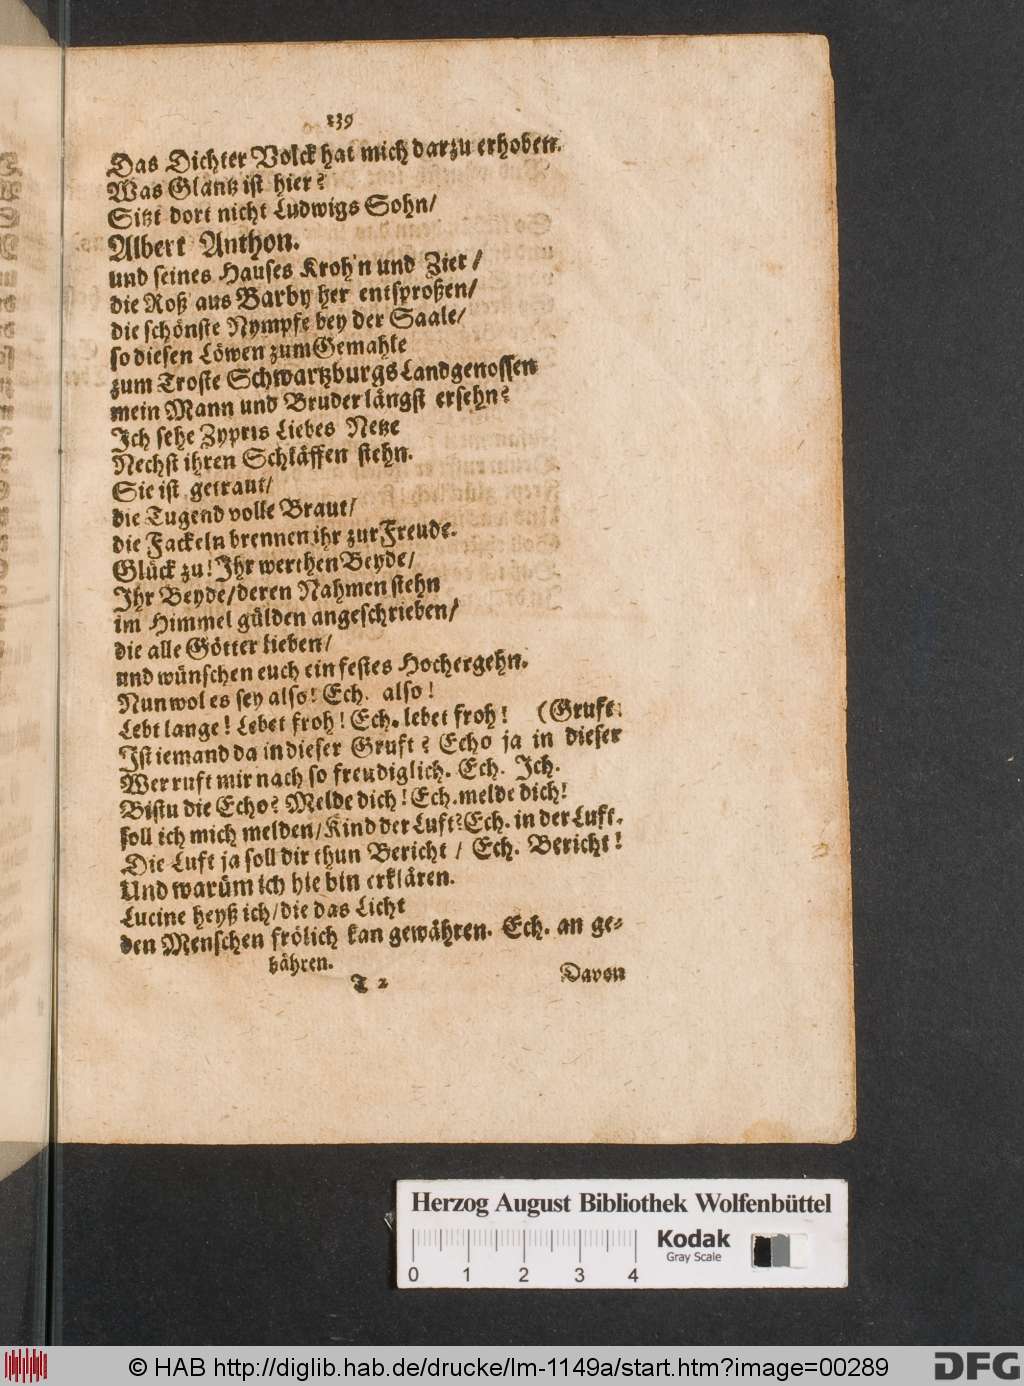 239
Das Dichter Volck hat mich darzu erhoben.
Was Glantz ist hier?
Sitzt dort nicht Ludwigs Sohn/
Albert Anthon.
und seines Hauses Krohn und Zier/
die Roß aus Barby her entsproßen/
die schönste Nympfe bey der Saale/
so diesen Löwen zum Gemahle
zum Troste Schwartzburgs Landgenossen
mein Mann und Bruder längst ersehn?
Ich sehe Zypris Liebes Netze
Nechst ihren Schläffen stehn.
Sie ist getraut/
die Tugend volle Braut/
die Fackeln brennen ihr zur Freude.
Glück zu! Ihr werthen Beyde/
Ihr Beyde/deren Nahmen stehn
im Himmel gülden angeschrieben/
die alle Götter lieben/
und wünschen euch ein festes Hochergehn.
Nun wol es sey also! Ech. also!
Lebt lange! Lebet froh! Ech. lebet froh! (Gruft.
Ist iemand da in dieser Gruft? Echo ja in dieser
Wer ruft mir nach so freudiglich. Ech. Ich.
Bistu die Echo? Melde dich! Ech. melde dich!
soll ich mich melden/Kind der Luft? Ech. in der Luft.
Die Luft ja soll dir thun Bericht/ Ech. Bericht!
Und warüm ich hie bin erklären.
Lucine heyß ich/die das Licht
den Menschen frölich kan gewähren. Ech. an ge-
bähren.
T 2 Davon
Herzog August Bibliothek Wolfenbüttel
Kodak
Gray Scale
0 1 2 3 4
© HAB http://diglib.hab.de/drucke/lm-1149a/start.htm?image=00289
DFG